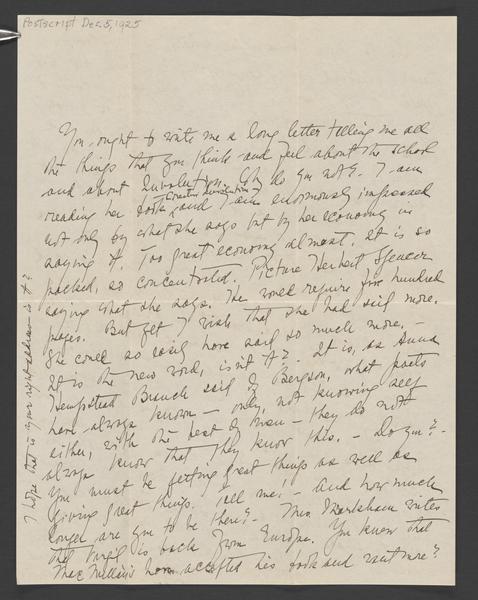 Postscript Dec. 5, 1925
You ought to write me a long letter telling me all
the things that you think and feel about the school
and about Involution. Why do you not? I am
reading her book (Creative Involution) and I am enormously impressed
not only by what she says but by her economy in
saying it. Too great economy almost. It is so
packed, so concentrated. Picture Herbert Spencer
saying what she says. He would require five hundred
pages. But yet I wish that she had said more.
She could so easily have said so much more. –
It is the new word, isn't it? It is, as Anna
Hempstead Branch said of Bergson, what poets
have always known – only, not knowing self
either, with the best of them – they do not
always know that they know this. – Do you? –
You must be getting great things as well as
giving great things. Tell me. – And how much
longer are you to be there? – Mrs Markham writes
that Virgil is back from Europe. You know that
MacMillans have accepted his book and want more?
I hope that is your right address – is it?